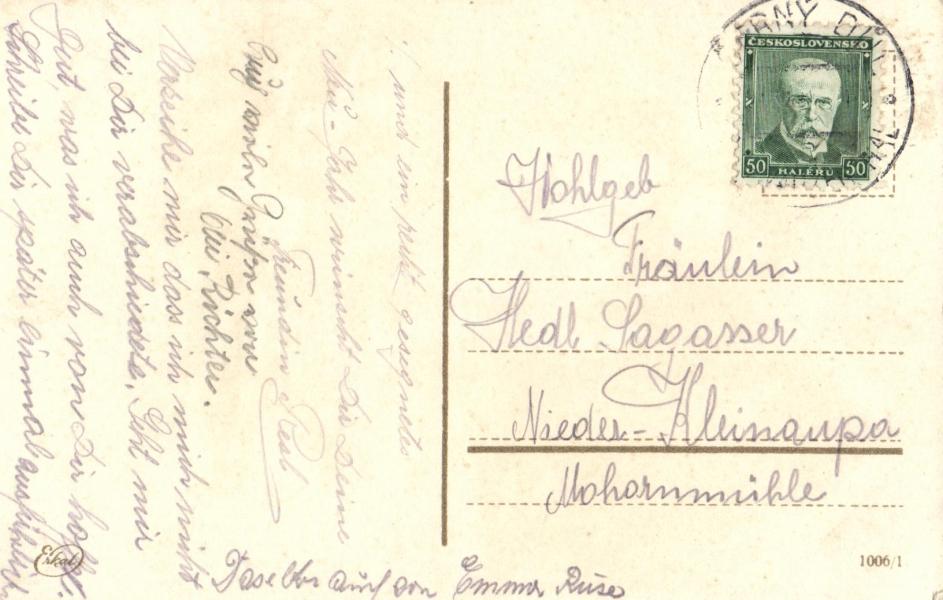 ! und ein recht gesegnetes
Neu-Jahr wünscht Dir Deine
Freundin Resl
Auch viele Grüße von
Obi Richter.
Verzeihe mir das ich mich nicht
bei Dir verabschiedete. Geht mir
Gut, was ich auch von Dir hoffe.
Schreibe Dir später einmal ausführlich
Daselbe auch von Emma Ruse
Wohlgeb
Fräulein
Hedl Sagasser
Nieder-Kleinaupa
Mohornmühle
ČESKOSLOVENSKO
50 HALÉŘŮ 50
ČERNÝ DŮL
Erkal
1006/1